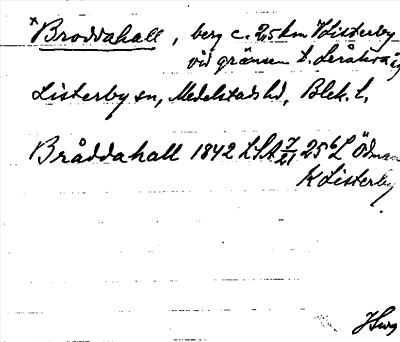 *Broddahall, berg c. 2,5 km V Listerby
vid gränsen t. Leråkra äg
Listerby sn, Medelstads hd, Blek. l.
Bråddahall 1842 LSA 25 L
K Listerby